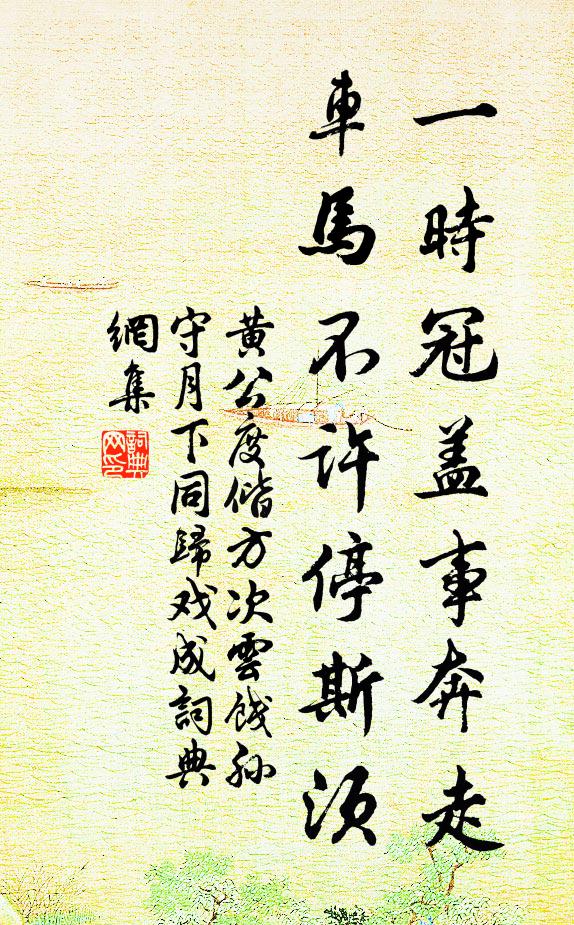 一時冠蓋事奔走
車馬不許停斯須
黃公度偕方次雲餞孙
守月下同歸戏成詞典
網集
詞典
网印